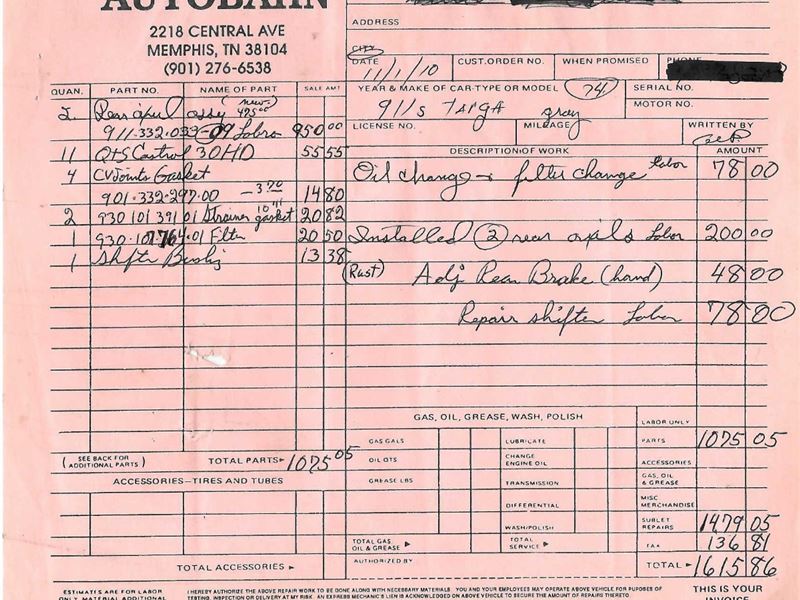 AUTOBAHN
2218 CENTRAL AVE
MEMPHIS, TN 38104
(901) 276-6538
ADDRESS
CITY
DATE 11/1/10
CUST. ORDER NO.
WHEN PROMISED
PHONE
YEAR & MAKE OF CAR-TYPE OR MODEL 74
911s TARGA gray
SERIAL NO.
MOTOR NO.
LICENSE NO.
MILEAGE
WRITTEN BY
QUAN. PART NO. NAME OF PART SALE AMT
2 Rear axel assy (new) 475.00
911.332.033-09 Lobro 950 00
11 Qts Castrol 30HD 55 55
4 CV Joints Gasket
901.332-297.00 - 3.70 14 80
2 930 101 391 01 Strainer gasket 10.41 20 82
1 930.107.764.01 Filter 20 50
1 Shifter Bushg 13 38
(SEE BACK FOR ADDITIONAL PARTS) TOTAL PARTS 1075 05
ACCESSORIES-TIRES AND TUBES
TOTAL ACCESSORIES
DESCRIPTION OF WORK AMOUNT
Oil change & filter change labor 78 00
Installed (2) rear axils Labor 200 00
(Rust) Adj Rear Brake (hand) 48 00
Repair shifter Labor 78 00
GAS, OIL, GREASE, WASH, POLISH
GAS GALS
OIL QTS
GREASE LBS
TOTAL GAS, OIL & GREASE
LUBRICATE
CHANGE ENGINE OIL
TRANSMISSION
DIFFERENTIAL
WASH/POLISH
TOTAL SERVICE
LABOR ONLY
PARTS 1075 05
ACCESSORIES
GAS, OIL & GREASE
MISC MERCHANDISE
SUBLET REPAIRS 1479 05
TAX 136 81
TOTAL 1615 86
AUTHORIZED BY
ESTIMATES ARE FOR LABOR
ONLY, MATERIAL ADDITIONAL
I HEREBY AUTHORIZE THE ABOVE REPAIR WORK TO BE DONE ALONG WITH NECESSARY MATERIALS. YOU AND YOUR EMPLOYEES MAY OPERATE ABOVE VEHICLE FOR PURPOSES OF
TESTING, INSPECTION OR DELIVERY AT MY RISK. AN EXPRESS MECHANIC'S LIEN IS ACKNOWLEDGED ON ABOVE VEHICLE TO SECURE THE AMOUNT OF REPAIRS THERETO.
THIS IS YOUR
INVOICE